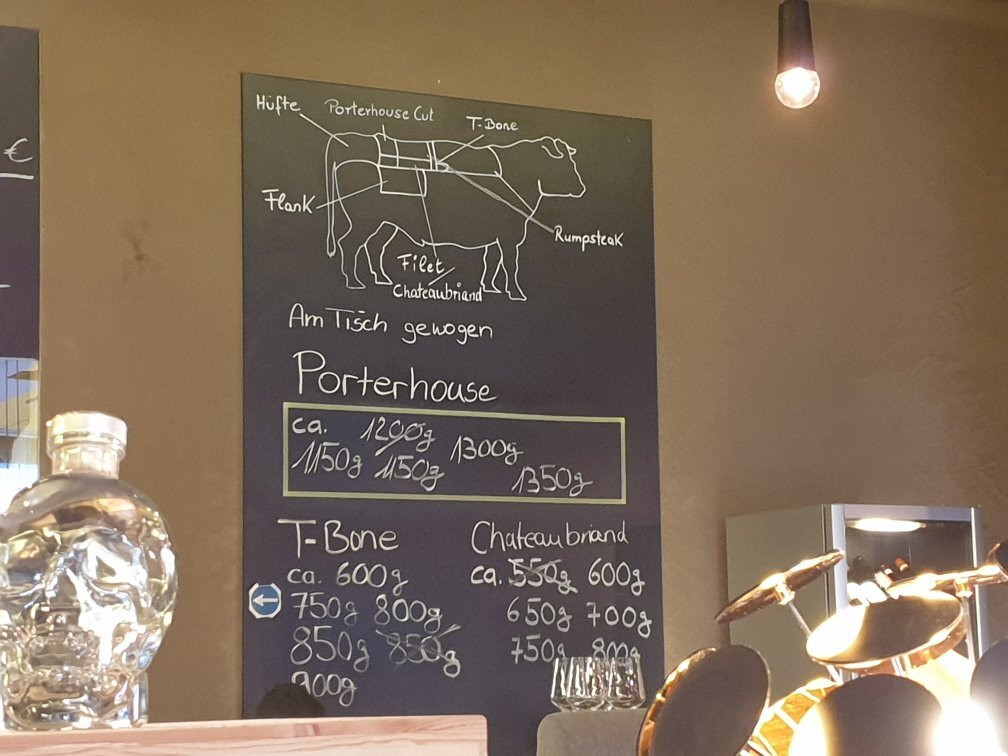 €
Hüfte Porterhouse Cut T-Bone
Flank
Rumpsteak
Filet
Chateaubriand
Am Tisch gewogen
Porterhouse
ca. 1200g 1300g
1150g 1150g 1350g
T-Bone
ca. 600g
750g 800g
850g 850g
900g
Chateaubriand
ca. 550g 600g
650g 700g
750g 800g